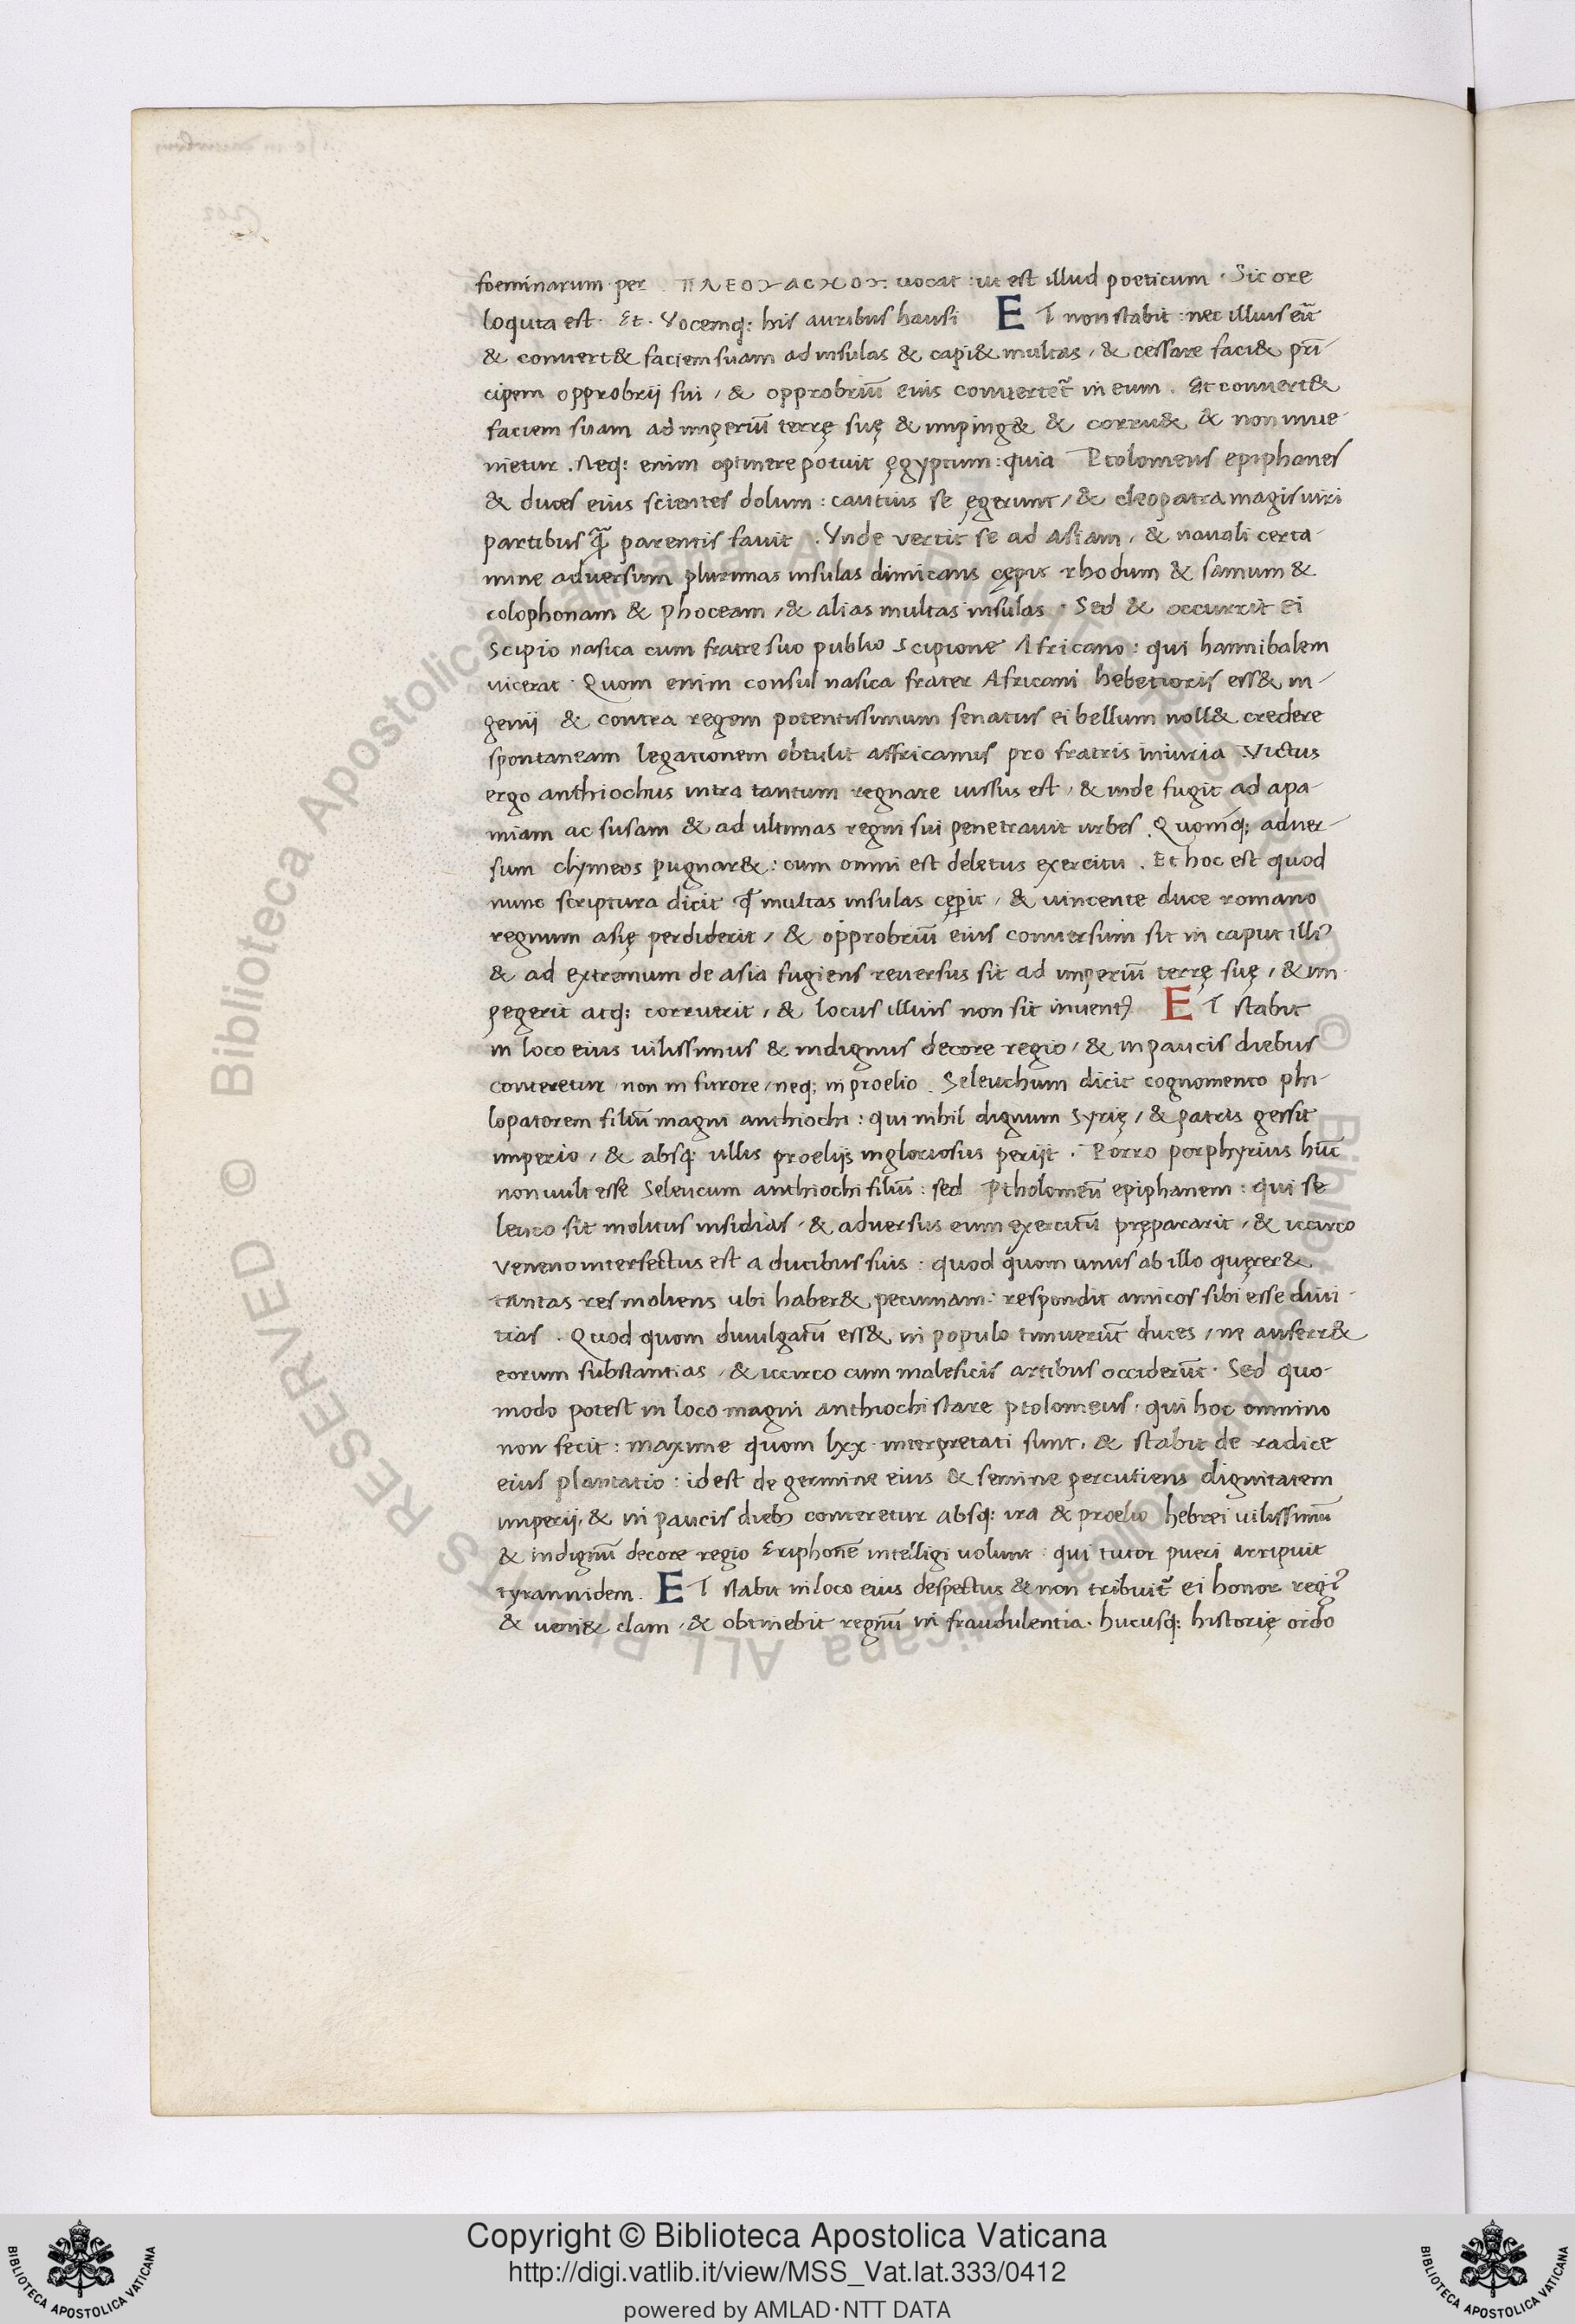 foeminarum per ΠΛΕΟΝΑCΜΟΝ: uocat : ut est illud poeticum . Sic ore
loquta est . Et . Vocemq; his auribus hausi ET non stabit : nec illius eīt
& conuert& faciem suam ad insulas & capi& multas / & cessare faci& prī-
cipem opprobrij sui / & opprobriū eius conuertet᷑ in eum . Et conuert&
faciem suam ad imperiū terrę suę & imping& & corru& & non inue-
nietur . Neq; enim optinere potuit ęgyptum : quia Ptolomeus epiphanes
& duces eius scientes dolum : cautius se ęgerunt / & cleopatra magis uiri
partibus q̄ parentis fauit . Vnde vertit se ad asiam / & nauali certa-
mine aduersum plurimas insulas dimicans cępit rhodum & samum &
colophonam & phoceam / & alias multas insulas . Sed & occurrit ei
Scipio nasica cum fratre suo publio Scipione Africano : qui hannibalem
uicerat . Quom enim consul nasica frater Africani hebetioris ess& in-
genij & contra regem potentissimum senatus ei bellum noll& credere
spontaneam legationem obtulit affricanus pro fratris iniuria . Victus
ergo anthiochus intra tantum regnare iussus est / & inde fugit ad apa-
miam ac susam & ad ultimas regni sui penetrauit urbes . Quomq; aduer-
sum elymeos pugnar& : cum omni est deletus exercitu . Et hoc est quod
nunc scriptura dicit ꝙ multas insulas cęperit / & uincente duce romano
regnum asię perdiderit / & opprobriū eius conuersum sit in caput illiꝰ
& ad extremum de asia fugiens reuersus sit ad imperiū terrę suę / & im-
pegerit atq; corruerit / & locus illius non sit inuentꝰ ET stabit
in loco eius uilissimus & indignus decore regio / & in paucis diebus
conteretur / non in furore / neq; in proelio . Seleuchum dicit cognomento phi-
lopatorem filiū magni anthiochi : qui nihil dignum Syrię / & patris gessit
imperio / & absq; ullis proelijs ingloriosus perijt . Porro porphyrius hūc
non uult esse Seleucum anthiochi filiū : sed Ptholomeū epiphanem : qui se
leuco sit molitus insidias / & aduersus eum exercitū prępararit / & iccirco
veneno intersectus est a ducibus suis : quod quom unus ab illo quęrer&
tantas res moliens ubi haber& pecuniam : respondit amicos sibi esse diui-
tias . Quod quom diuulgatū ess& in populo timuerūt duces / ne auferr&
eorum substantias / & iccirco eum maleficis artibus occiderūt . Sed quo-
modo potest in loco magni anthiochi stare ptolomeus : qui hoc omnino
non fecit : maxime quom lxx . interpretati sunt . & stabit de radice
eius plantatio : id est de germine eius & semine percutiens dignitatem
imperij . & in paucis diebꝫ conteretur absq; ira & proelio hebrei uilissimū
& indignū decore regio Eriphonē intelligi uolunt : qui tutor pueri arripuit
tyrannidem . ET stabit in loco eius despectus & non tribuit᷑ ei honor regiꝰ
& ueni& clam / & obtinebit regnū in fraudulentia . hucusq; historię ordo
Copyright © Biblioteca Apostolica Vaticana
http://digi.vatlib.it/view/MSS_Vat.lat.333/0412
powered by AMLAD·NTT DATA
BIBLIOTECA APOSTOLICA VATICANA
BIBLIOTECA APOSTOLICA VATICANA
© Biblioteca Apostolica Vaticana ALL RIGHTS RESERVED